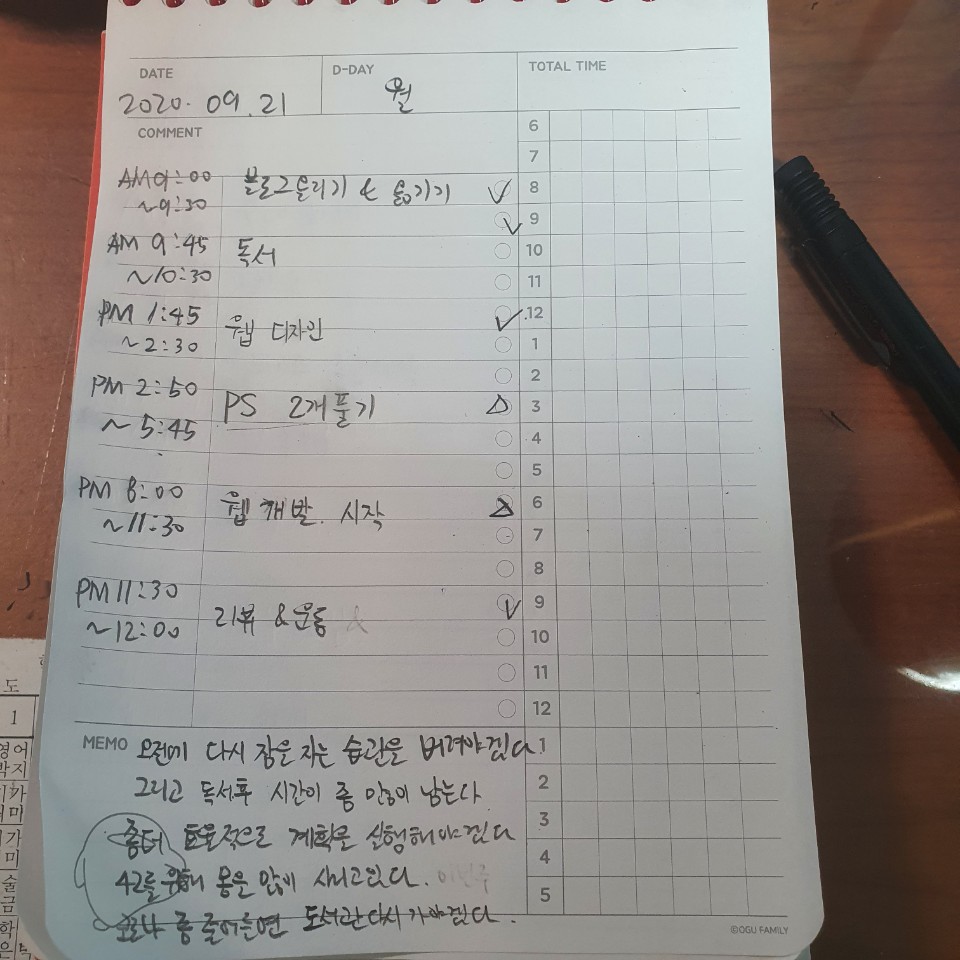 DATE
D-DAY
TOTAL TIME
2020. 09. 21
월
COMMENT
AM 9:00
~9:30
블로그올리기 & 옮기기
AM 9:45
~10:30
독서
PM 1:45
~2:30
웹 디자인
PM 2:50
~5:45
PS 2개풀기
PM 8:00
~11:30
웹 개발. 시작
PM 11:30
~12:00
리뷰 & 운동 &
6
7
8
9
10
11
12
1
2
3
4
5
6
7
8
9
10
11
12
1
2
3
4
5
MEMO
오전에 다시 잠은 자는 습관을 버려야겠다
그리고 독서후 시간이 좀 많이 남는다
좀더 효율적으로 계획을 실행해야겠다
42를 위해 몽은 많이 사리고있다. 이번주
코로나 좀 줄어들면 도서관 다시 가야겠다.
©OGU FAMILY
도
1
영어
박지
가
미
가
미
술
금
학
은